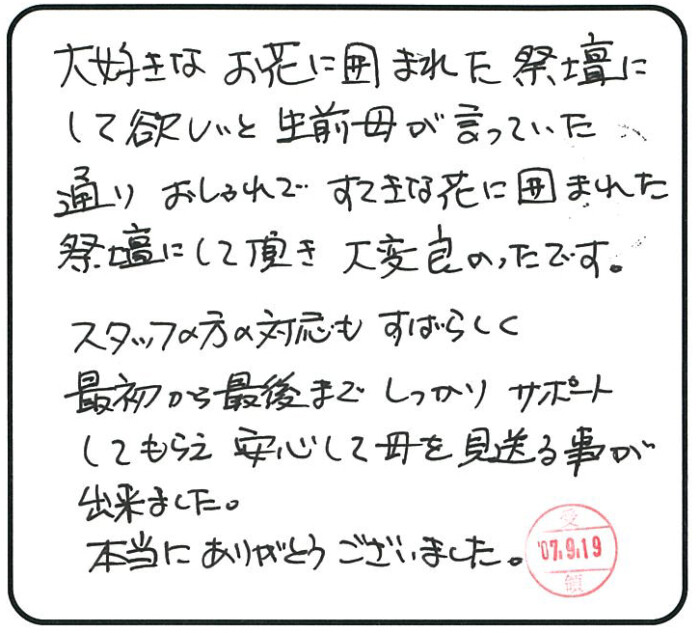 大好きな お花に囲まれた 祭壇に
して欲しいと 生前母が言っていた
通り おしゃれで すてきな花に囲まれた
祭壇にして頂き 大変良かったです。
スタッフの方の対応も すばらしく
最初から最後まで しっかり サポート
してもらえ 安心して母を見送る事が
出来ました。
本当に ありがとう ございました。
受
'07.9.19
領